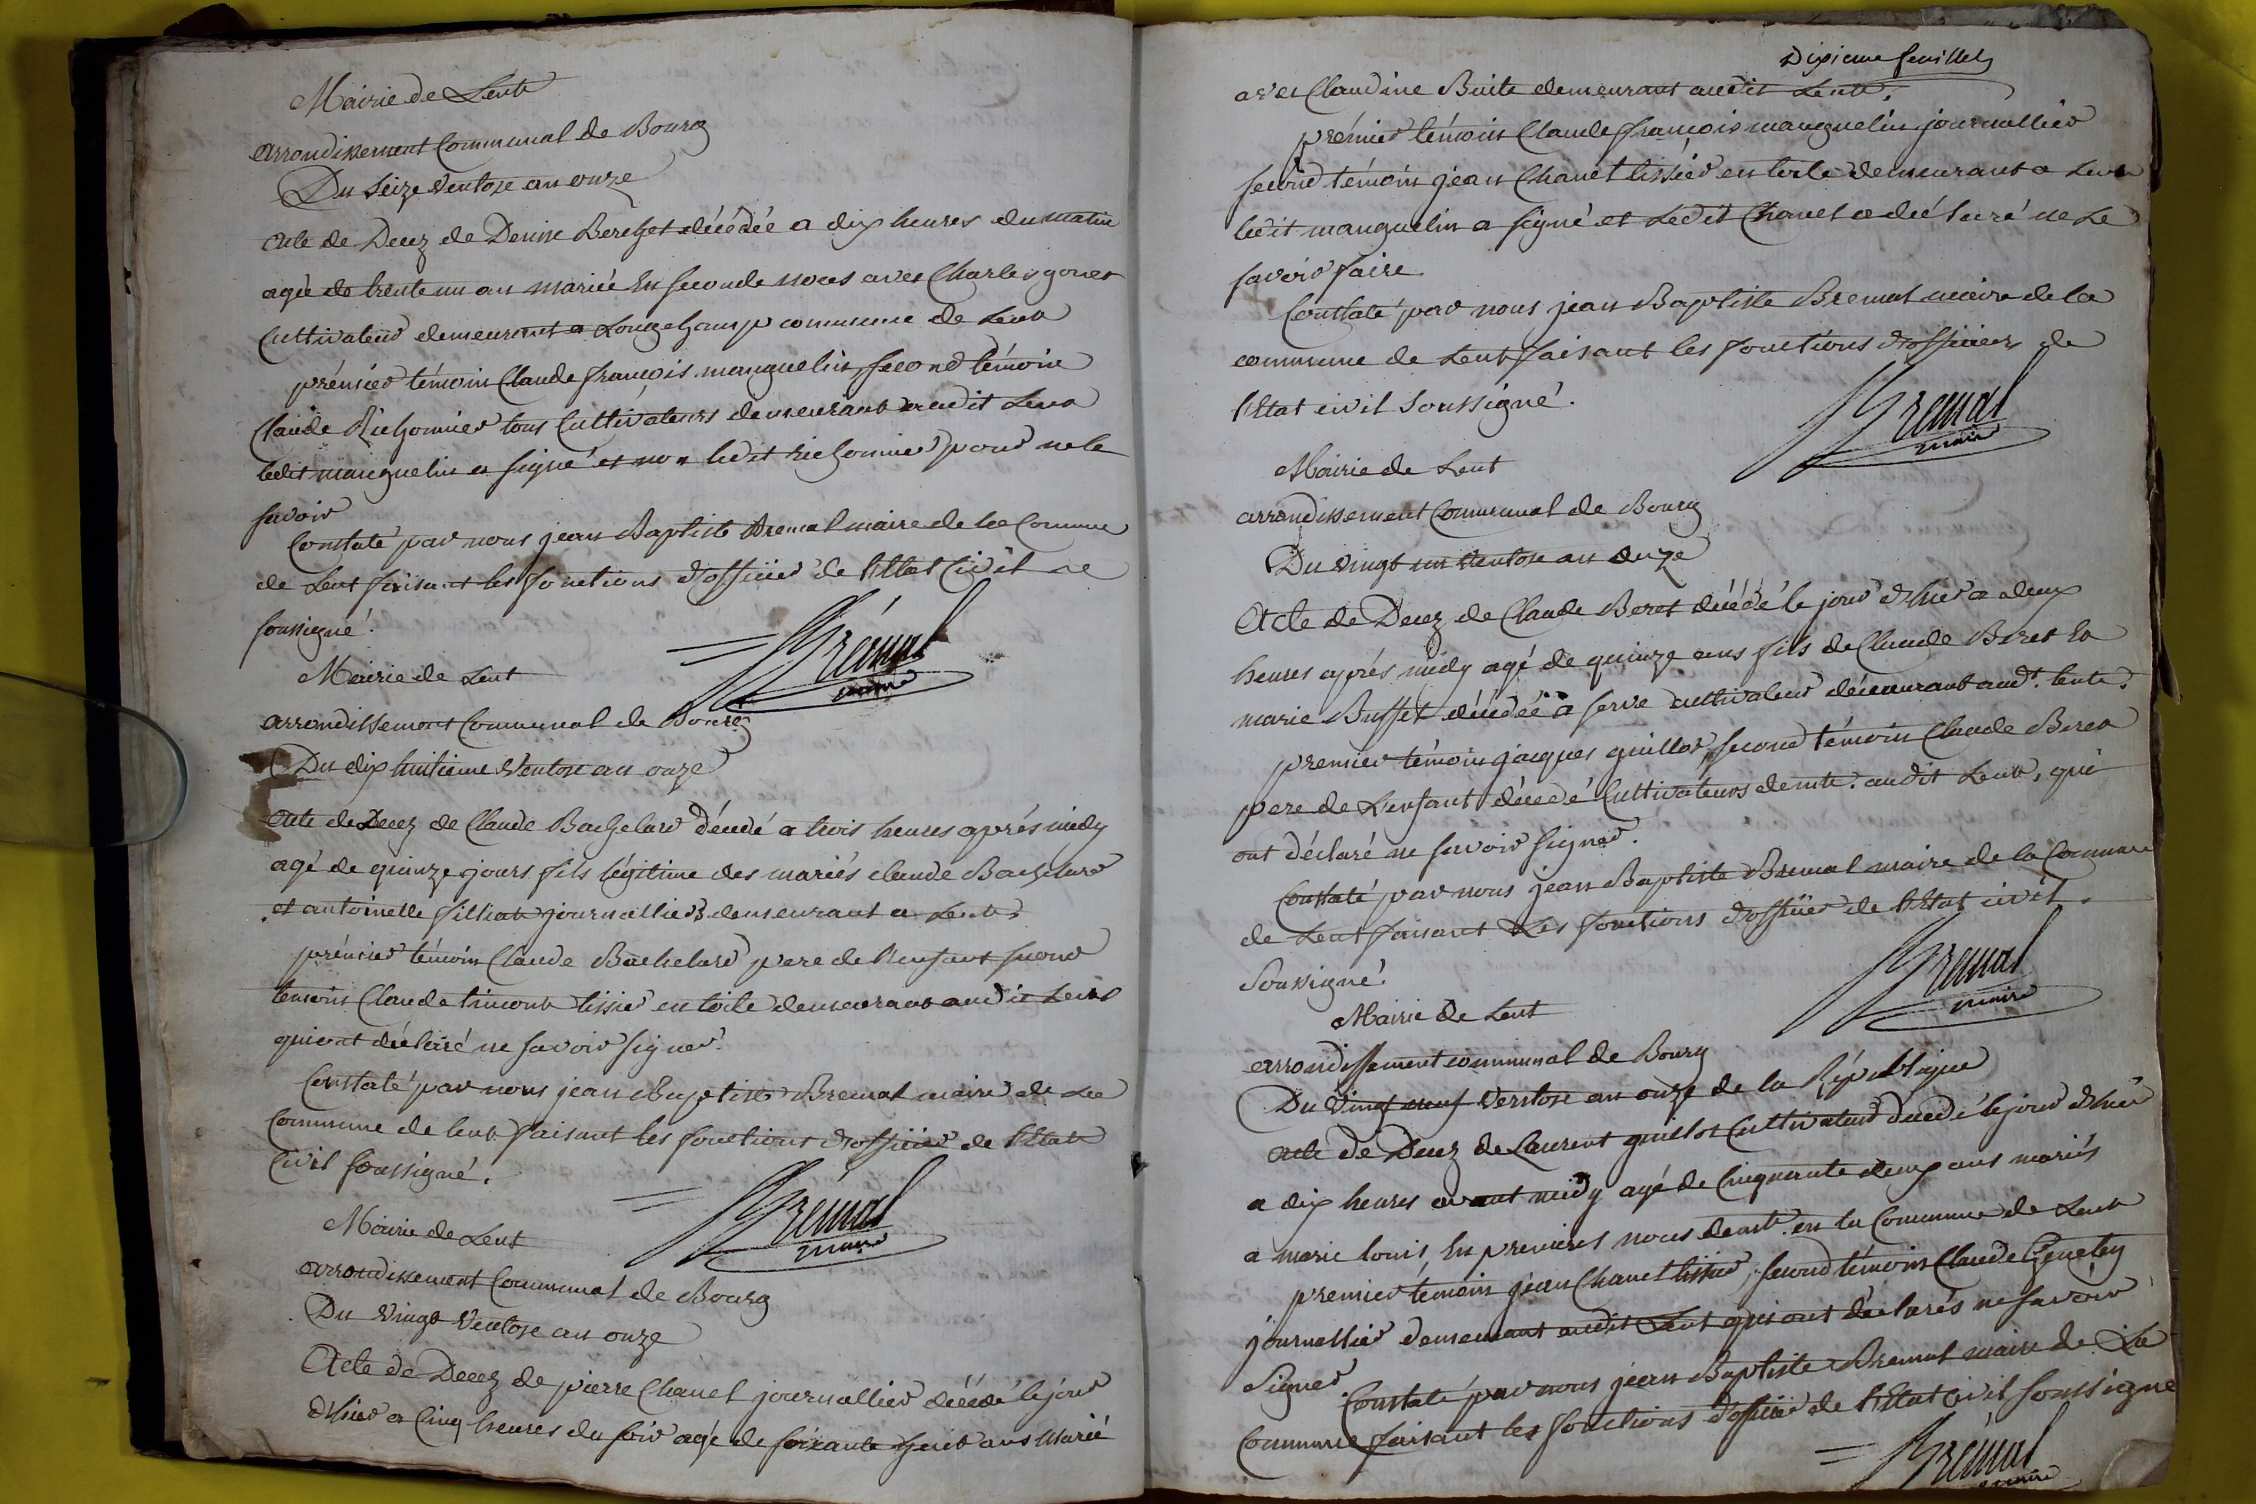 Mairie de Lent
arrondissement Communal de Bourg
Du Seize Ventose an onze
Acte de Decez de Denise Berchet décédée a dix heures du matin
agée de trente un an mariée En seconde noces avec Charles gonet
Cultivateur demeurant a Longchamp commune de Lent
prémier témoin Claude françois manguelin, second témoin
Claude Richonnier tous Cultivateurs demeurant audit Lent
ledit manguelin a signé et non ledit richonnier pour ne le
savoir
Constaté par nous jean Baptiste Bremal maire de la Commune
de Lent faisant les fonctions d'officier de l'Etat Civil
soussigné.
Brémal
maire
Mairie de Lent
arrondissement Communal de Bourg
Du dix huitieme Ventose an onze
Acte de Decez de Claude Bachelard décédé a trois heures aprés midy
agé de quinze jours fils légitime des mariés claude Bachelard
et antoinette filliat journalliers demeurant a Lent.
prémier témoin Claude Bachelard pere de l'enfant second
temoin Claude timont tissier en toile demeurant audit Lent
qui ont déclaré ne savoir signer.
Constaté par nous jean Baptiste Bremal maire de La
Commune de lent faisant les fonctions d'officier de l'Etat
Civil soussigné.
Brémal
maire
Mairie de Lent
arrondissement Communal de Bourg
Du Vingt Ventose an onze
Acte de Decez de pierre Chanel journallier décédé le jour
d'hier a Cinq heures du soir agé de soixante huit ans Marié
Dixieme feuillet
avec Claudine Buite demeurant audit Lent.
prémier témoin Claude françois manguelin journallier
second témoin jean Chanel tissier en toile demeurant a Lent
ledit manguelin a signé et Ledit Chanel a déclaré ne Le
savoir faire
Constaté par nous jean Baptiste Bremal maire de la
commune de Lent faisant les fonctions d'officier de
l'Etat civil Soussigné.
Bremal
maire
Mairie de Lent
arrondissement Communal de Bourg
Du vingt un Ventose an onze
Acte de Decez de Claude Beret décédé le jour d'hier a deux
heures aprés midy agé de quinze ans fils de Claude Beret Et
marie Buffet décédée a serve cultivateur démeurant aud.t lent.
premier témoin jacques guillot, second témoin Claude Beret
pere de L'enfant décedé Cultivateurs demte. audit Lent, qui
ont déclaré ne savoir signer.
Constaté par nous jean Baptiste Bremal maire de la Commune
de Lent faisant Les fonctions d'officier de l'Etat civil.
Soussigné.
Bremal
maire
Mairie de Lent
arrondissement communal de Bourg
Du Vingt neuf Ventose an onze de la République
Acte de Decez de Laurent guillot Cultivateur décedé le jour d'hier
a dix heures avant midy agé de Cinquante deux ans mariés
a marie louis, En premieres noces demt. en la Commune de Lent
premier témoin jean Chanel tissier, second témoin Claude
journallier demeurant audit Lent qui ont déclarés ne savoir
Signer
Constaté par nous jean Baptiste Bremal maire de La
Commune faisant les fonctions d'officier de l'Etat Civil soussigné
Brémal
maire